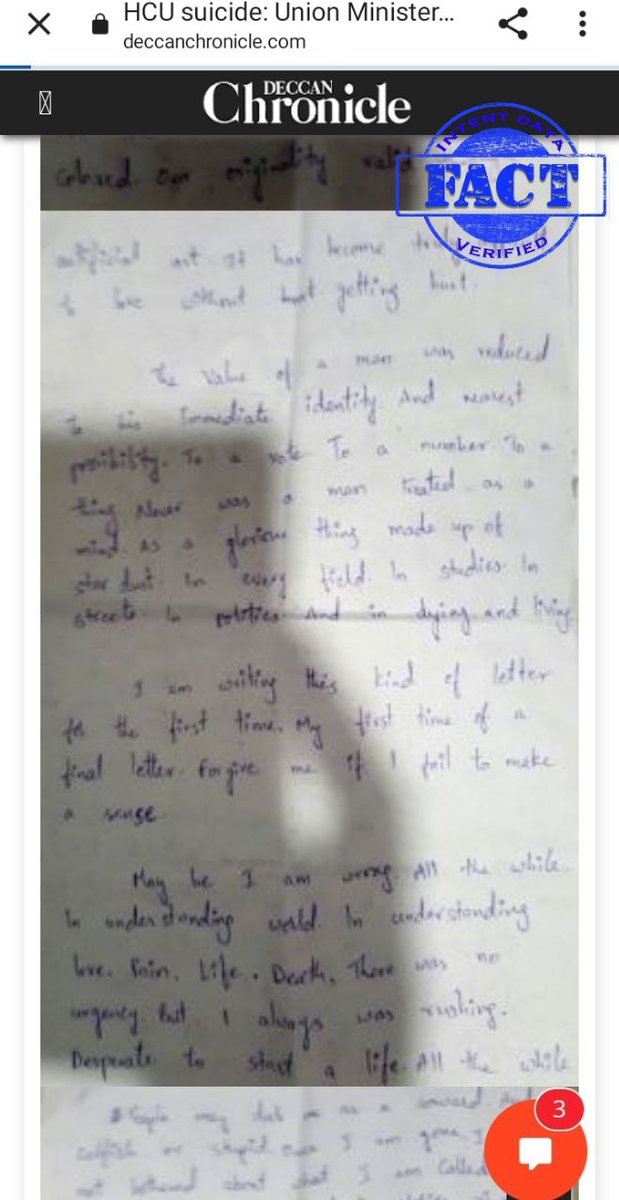 HCU suicide: Union Minister...
deccanchronicle.com
DECCAN
Chronicle
INTENT DATA
FACT
VERIFIED
colored. Our originality valid
artificial art. It has become truly
to love without getting hurt.
The value of a man was reduced
to his immediate identity. And nearest
possibility. To a vote. To a number. To a
thing. Never was a man treated as a
mind. As a glorious thing made up of
star dust. In every field. In studies. In
streets. In politics. And in dying and living.
I am writing this kind of letter
for the first time. My first time of a
final letter. Forgive me if I fail to make
a sense.
May be I am wrong. All the while.
In understanding world. In understanding
love. Pain. Life. Death. There was no
urgency. But I always was rushing.
Desperate to start a life. All the while
may as a coward. And
selfish or stupid once I am gone. I
not bothered about what I am called
3